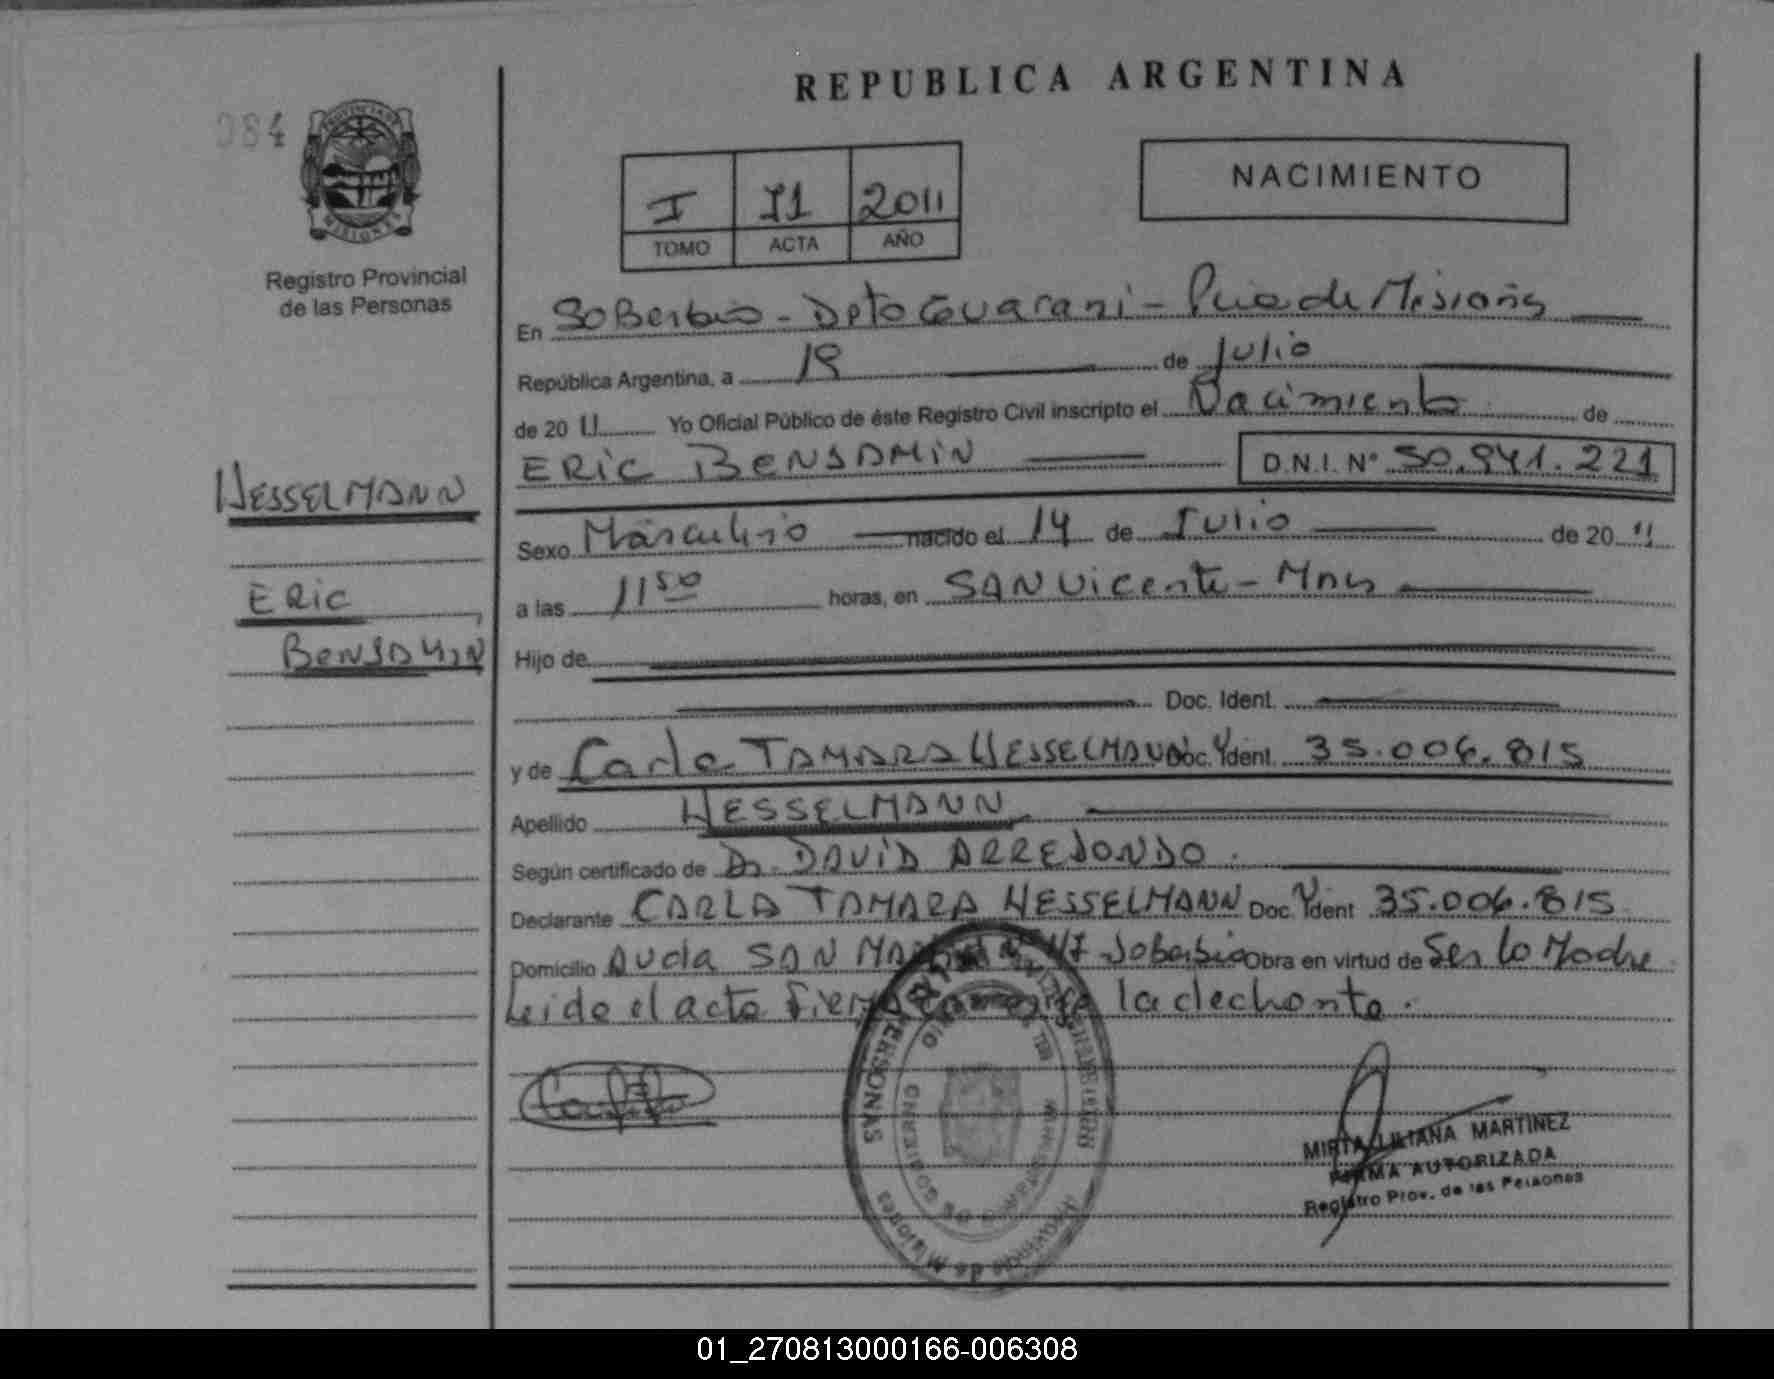 REPUBLICA ARGENTINA
084
PROVINCIA DE
MISIONES
Registro Provincial
de las Personas
I 71 2011
TOMO ACTA AÑO
NACIMIENTO
En SoBerbio - Dpto Guarani - Pcia de Misiones
República Argentina, a 19 de Julio
de 20 11 Yo Oficial Público de éste Registro Civil inscripto el Nacimiento de
ERIC BENJAMIN D.N.I. Nº 50.941.221
HESSELMANN
ERIC
BENJAMIN
Sexo Masculino nacido el 14 de Julio de 20 11
a las 11 50 horas, en SAN Vicente - Mnes
Hijo de
Doc. Ident.
y de Carla TAMARA HESSELMANN Doc. Ident. 35.006.815
Apellido HESSELMANN
Según certificado de Dr. DAVID ARREDONDO.
Declarante CARLA TAMARA HESSELMANN Doc. Ident 35.006.815
Domicilio Avda SAN Soberbio Obra en virtud de Ser la Madre
Leida el acta la declarante.
PERSONAS
GOBIERNO
Provincia de Misiones
MIRTA LILIANA MARTINEZ
FIRMA AUTORIZADA
Registro Prov. de las Personas
01_270813000166-006308